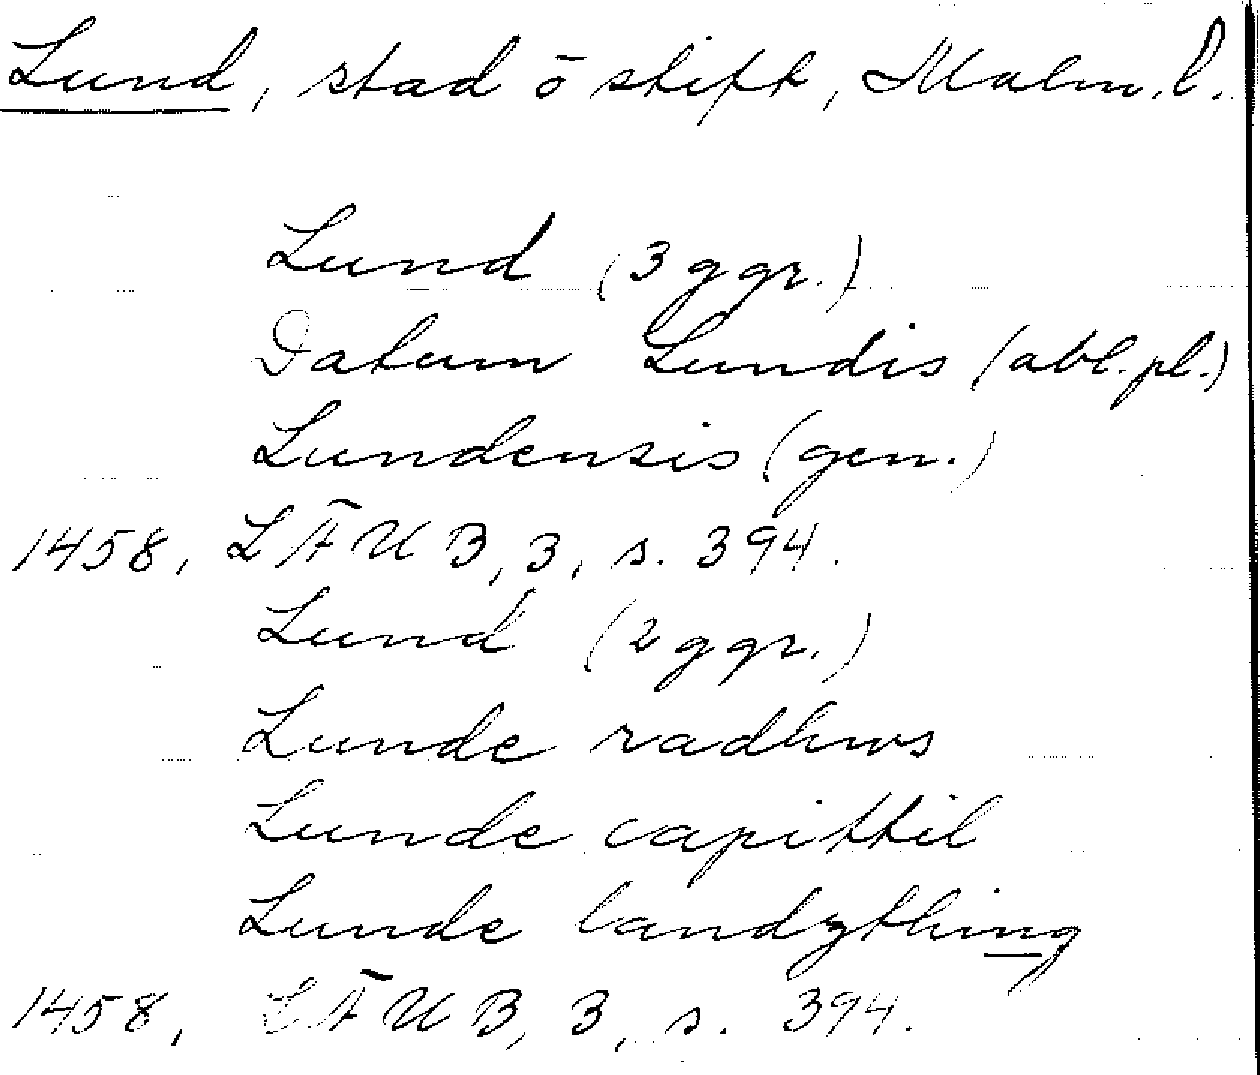 Lund, stad ō stift, Malm. l.
Lund (3 ggr.)
Datum Lundis (abl. pl.)
Lundensis (gen.)
1458, LÄUB, 3, s. 394.
Lund (2 ggr.)
Lunde radhws
Lunde capittil
Lunde landzthing
1458, LÄUB, 3, s. 394.